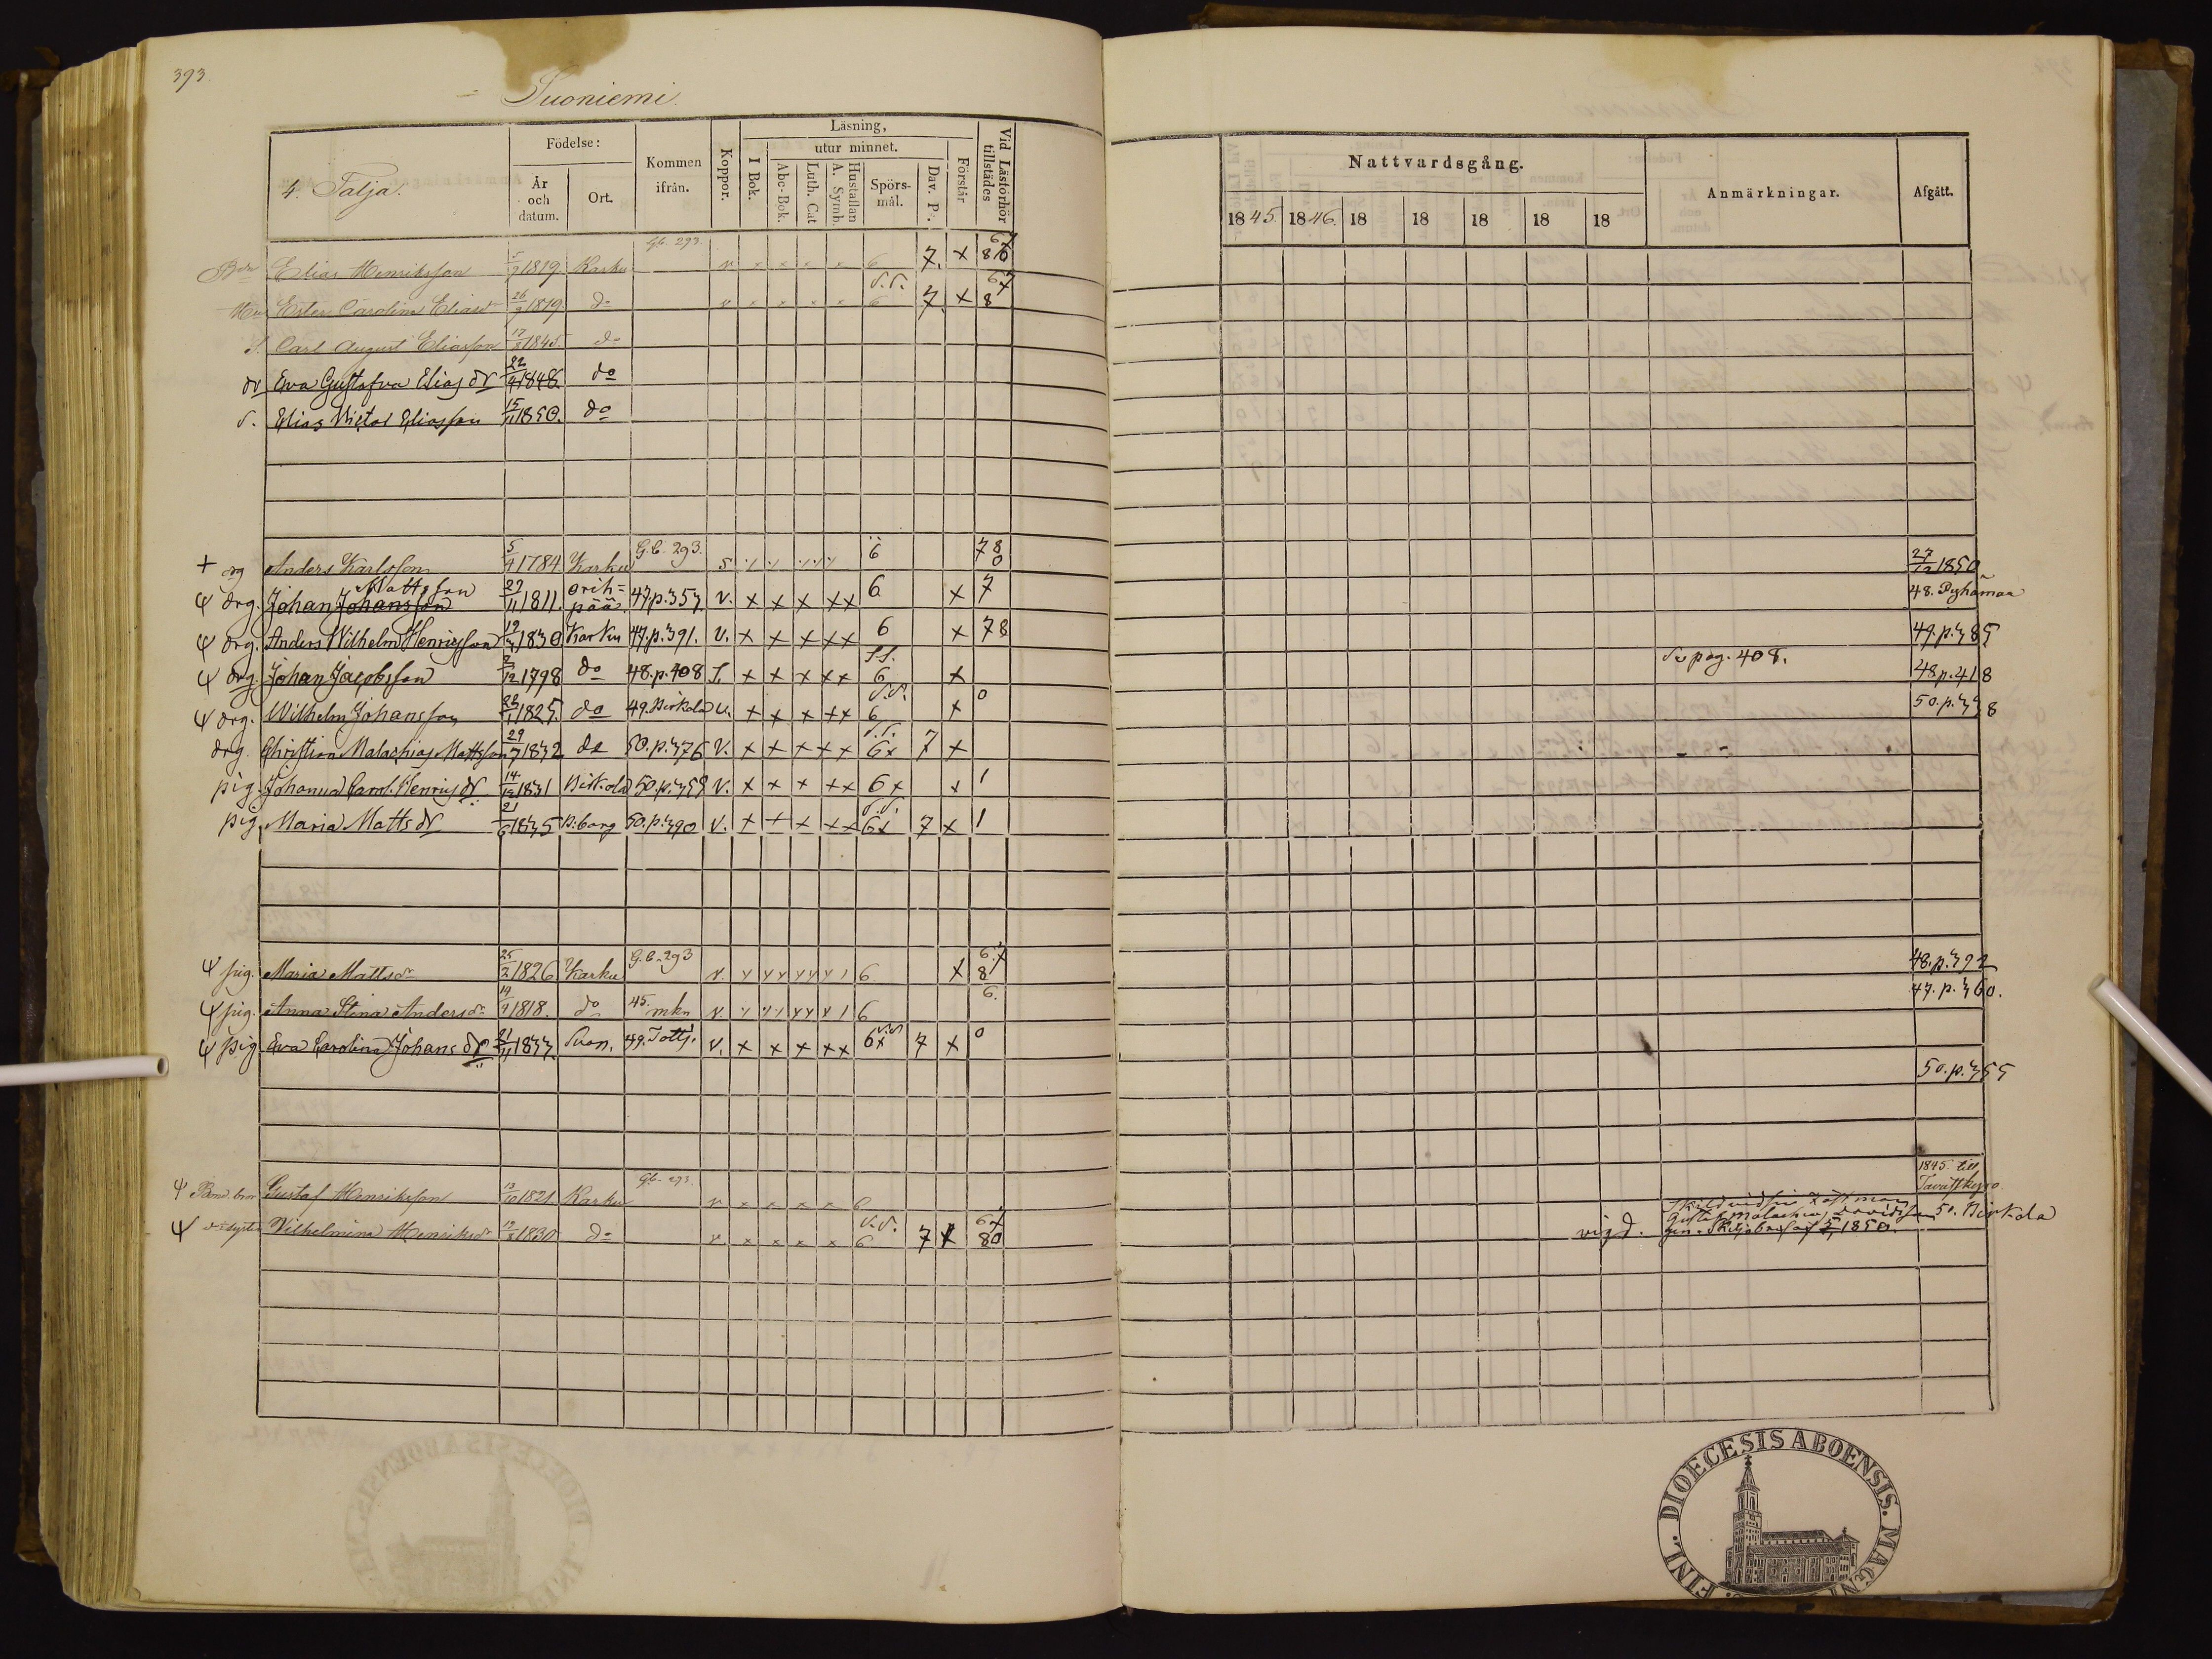 393.
Suoniemi.
4. Talja.
Födelse:
År och datum.
Ort.
Kommen ifrån.
Koppor.
Läsning,
I Bok.
utur minnet.
Abc-Bok.
Luth. Cat
Hustaflan A. Symb.
Spörs-mål.
Dav. Ps.
Förstår
Vid Läsförhör tillstädes
Nattvardsgång.
1845. 1846. 18 18 18 18 18
Anmärkningar.
Afgått.
Elias Henriksson 5/7 1819 Karku G.b. 293. v x x x x 6 7. x 67 8/0
Hu Ester Carolina Eliasdr 26/3 1819. do v x x x x S.S. 6 7. x 67 8
S. Carl August Eliasson 17/3 1845 do
dr Eva Gustafva Elias dr 22/4 1848. do
S. Elias Victor Eliasson 15/11 1850. do
+ drg Anders Karlsson 5/4 1784 Karku G.b. 293. S 6 78 0 27/12 1850
ψ drg. Johan Johansson Mattsson 27/11 1811. orih=pää 47.p.357 v. x x x x x 6 x 7 48. Pyhämaa
ψ drg. Anders Wilhelm Henricsson 19/3 1830 Karku 47.p.391. v. x x x x x 6 x 78 49.p.385
ψ drg. Johan Jacobsson 2/12 1798 do 48.p.408 S. x x x x x S.S. 6 x Se pag. 408. 48 p.418
ψ drg. Wilhelm Johansson 22/1 1825. do 49. Birkala v. x x x x x S.S. 6 x 0 50.p.338
drg. Christian Malachias Mattsson 29/7 1832 do 50.p.376 v. x x x x x S.S. 6x 7 x
pig. Johanna Carol. Henrics dr 14/12 1831 Birkala 50.p.359 v. x x x x x 6x x 1
pig. Maria Matts dr 21/6 1835 B:borg 50.p.390 v. x x x x x S.S. 6x 7 x 1
ψ pig. Maria Mattsdr 25/3 1826 Karku G.b. 293 v. 6 x 6.7 81 48.p.392
ψ pig. Anna Stina Andersdr 14/4 1818. do 45. mkn v. 6 6. 47.p.360.
ψ pig. Eva Carolina Johans dr 21/11 1833. Suon. 49. Tottj. v. x x x x x S.S. 6x 7 x 0 50.p.355
ψ Bond. bror Gustaf Henriksson 13/10 1821 Karku G.b. 293. v x x x x x 6 1845. till Tavastkyro
ψ Wilhelmina Henriksdr 1830 do v. x x x x S.S. 6 7 x 67 80 vigd. Skild vid sin fästman Gustaf Malachias Davidsson gm. Skiljobref af 1850. 50. Birkala
DIOECESIS ABOENSIS. MAGNI FINI.